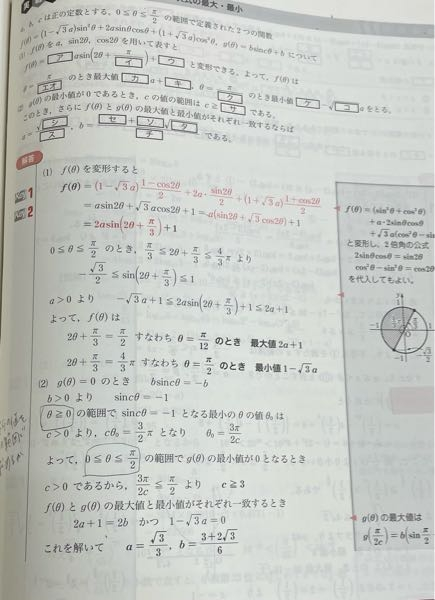 式の最大・最小
a, b, c は正の定数とする。0≦θ≦π/2 の範囲で定義された2つの関数
f(θ)=(1−√3a)sin²θ+2asinθcosθ+(1+√3a)cos²θ, g(θ)=bsincθ+b について
(1) f(θ) を a, sin2θ, cos2θ を用いて表すと
f(θ)=[ア]asin(2θ+π/[イ])+[ウ] と変形できる。よって, f(θ) は
θ=π/[エオ] のとき最大値 [カ]a+[キ], θ=π/[ク] のとき最小値 [ケ]−√[コ]a をとる。
(2) g(θ) の最小値が 0 であるとき, c の値の範囲は c≧[サ] である。
このとき, さらに f(θ) と g(θ) の最大値と最小値がそれぞれ一致するならば
a=√[シ]/[ス], b=([セ]+[ソ]√[タ])/[チ] である。
解答
(1) f(θ) を変形すると
f(θ)=(1−√3a)(1−cos2θ)/2+2a・sin2θ/2+(1+√3a)(1+cos2θ)/2
=asin2θ+√3acos2θ+1=a(sin2θ+√3cos2θ)+1
=2asin(2θ+π/3)+1
0≦θ≦π/2 のとき, π/3≦2θ+π/3≦4/3π より
−√3/2≦sin(2θ+π/3)≦1
a>0 より −√3a+1≦2asin(2θ+π/3)+1≦2a+1
よって, f(θ) は
2θ+π/3=π/2 すなわち θ=π/12 のとき 最大値 2a+1
2θ+π/3=4/3π すなわち θ=π/2 のとき 最小値 1−√3a
(2) g(θ)=0 のとき bsincθ=−b
b>0 より sincθ=−1
θ≧0 の範囲で sincθ=−1 となる最小の θ の値 θ₀ は
c>0 より, cθ₀=3/2π となり θ₀=3π/2c
よって, 0≦θ≦π/2 の範囲で g(θ) の最小値が 0 となるとき
c>0 であるから, 3π/2c≦π/2 より c≧3
f(θ) と g(θ) の最大値と最小値がそれぞれ一致するとき
2a+1=2b かつ 1−√3a=0
これを解いて a=√3/3, b=(3+2√3)/6
f(θ)=(sin²θ+cos²θ)
+a・2sinθcosθ
+√3a(cos²θ−si
と変形し, 2倍角の公式
2sinθcosθ=sin2θ
cos²θ−sin²θ=cos
を代入してもよい。
y
1
−1
1
−1
g(θ) の最大値は
g(π/2c)=b(sin